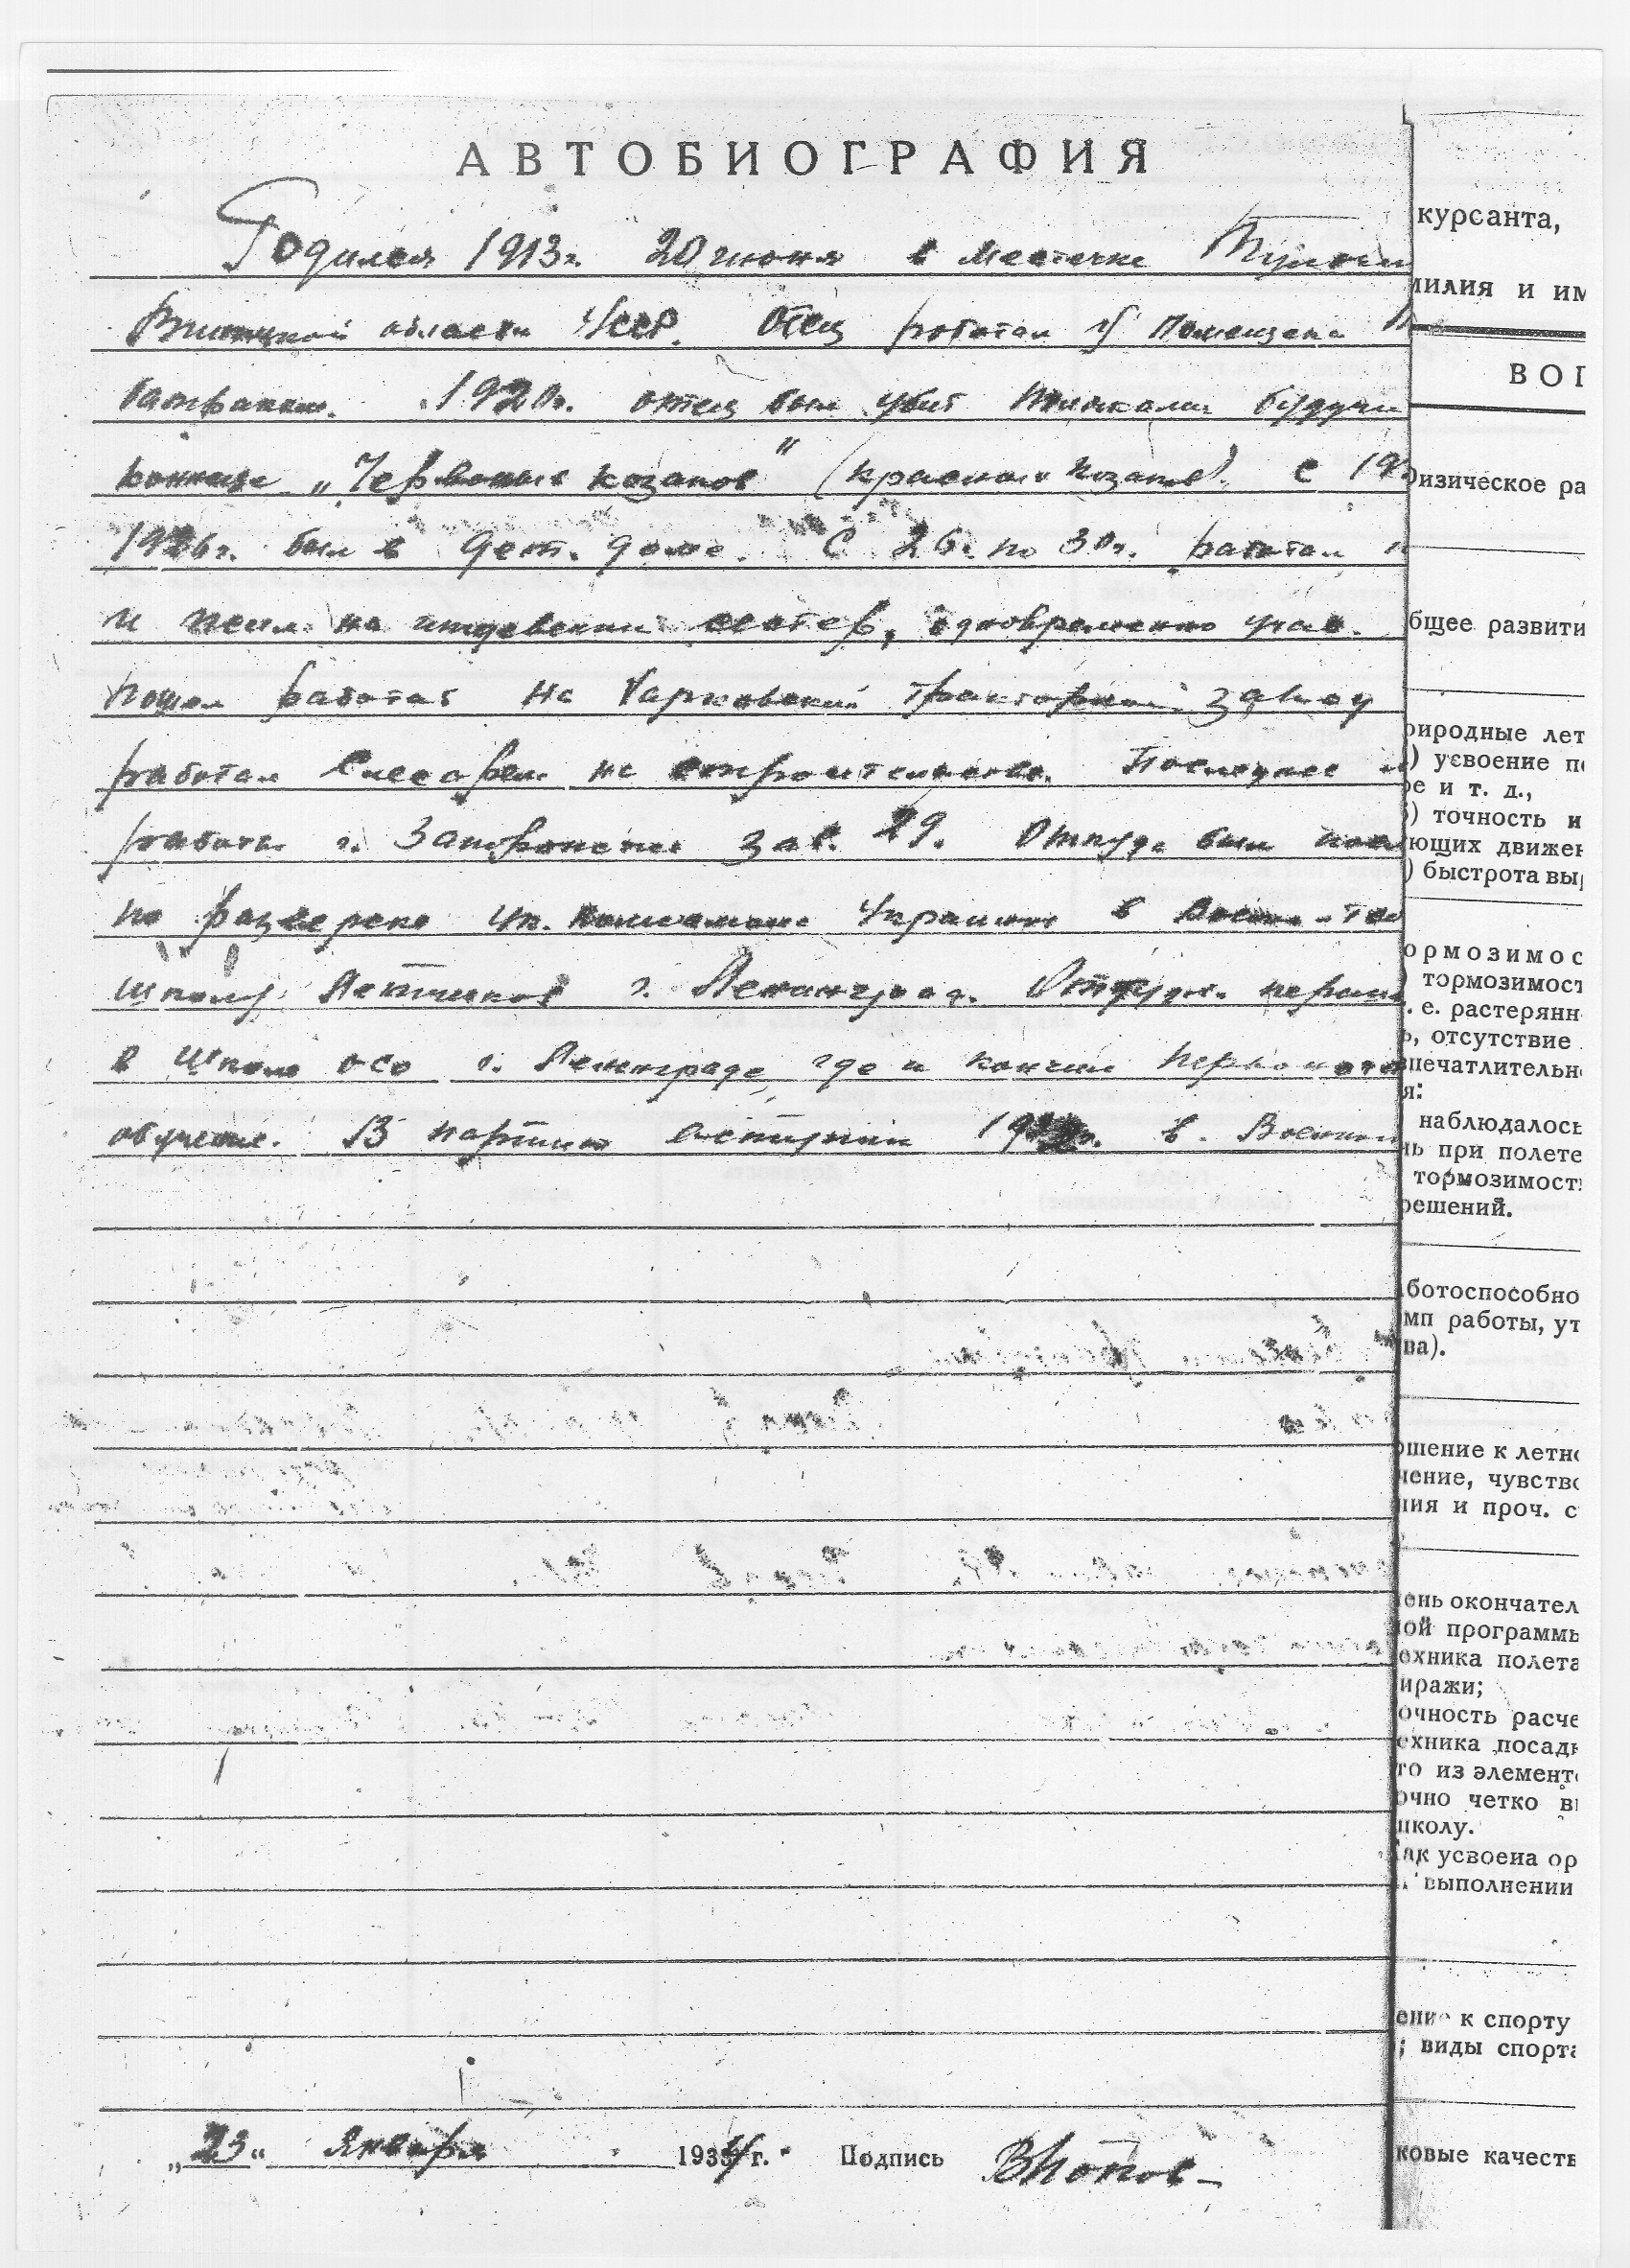 АВТОБИОГРАФИЯ
Родился 1913г. 20 июня в местечке
Винницкой области УССР. Отец работал у Помещека
батраком. 1920г. отец был убит будучи
коннице „Червоных козаков" (красных козаков). с
1926г. был в Дет. доме. С 26г. по 30г. работал
и жил на иждевении сестер, одновременно учил.
Пошел работат на Харковский тракторный завод
работал Слесарем на строительстве. Последнее
работы г. Запорожие зав. 29. Откуда был
по разверске Цк. комсомола Украины в Военно-
школу Летчиков г. Ленинград. Оттуда.
в Школу осо г. Ленинграде, где и кончил
обучение. В партию вступил в.
„23" Января 1934 г. Подпись ВПопов
курсанта,
милия и им
ВОП
Физическое ра
бщее развити
риродные лет
) усвоение по
ре и т. д.,
) точность и
ющих движен
) быстрота выр
ормозимос
) тормозимост
. е. растерянн
ь, отсутствие
впечатлительн
я:
наблюдалось
нь при полете
тормозимост
решений.
ботоспособно
мп работы, ут
ва).
ошение к летно
чение, чувство
ния и проч. с
ень окончател
ой программы
ехника полета
иражи;
очность расче
ехника посадк
то из элементо
очно четко в
школу.
ак усвоена ор
выполнении
ение к спорту
; виды спорта
ковые качеств